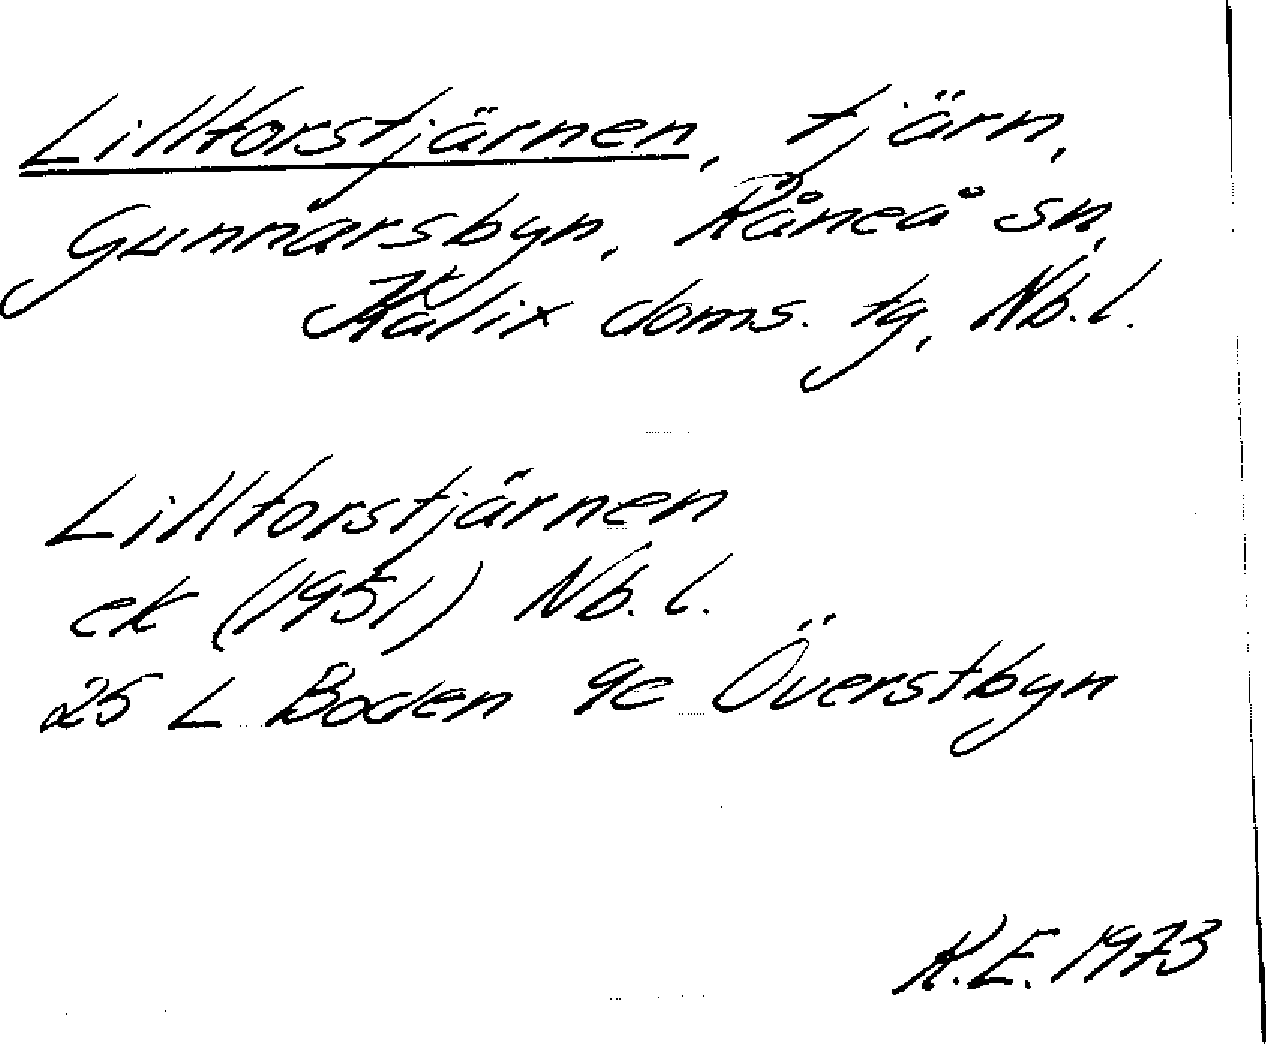 Lillforstjärnen, tjärn,
Gunnarsbyn, Råneå sn,
Kalix doms. tg, Nb. l.
Lillforstjärnen
ek (1951) Nb. l.
25 L Boden 9c Överstbyn
K.E. 1973